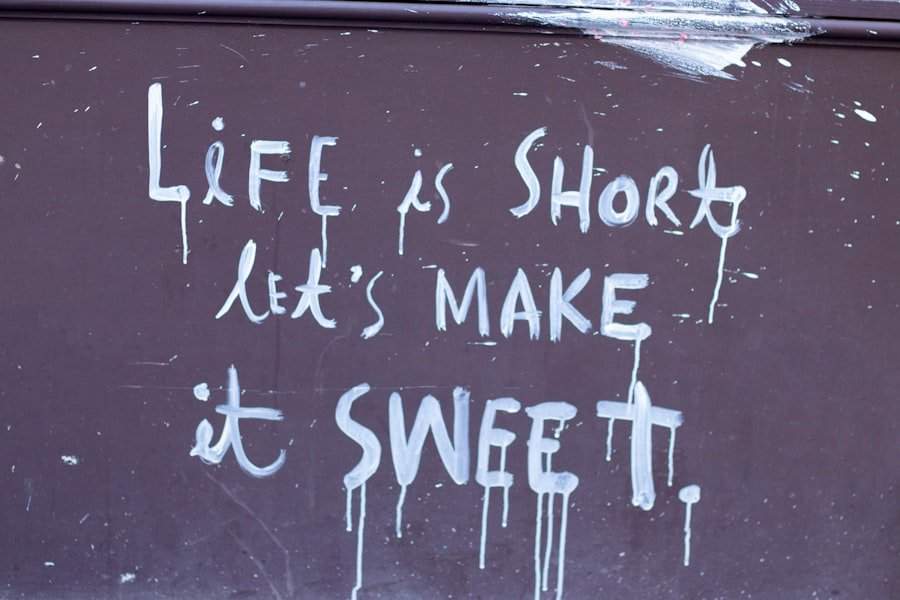 LiFE is SHORt
LEt's MAKE
it SWEET.